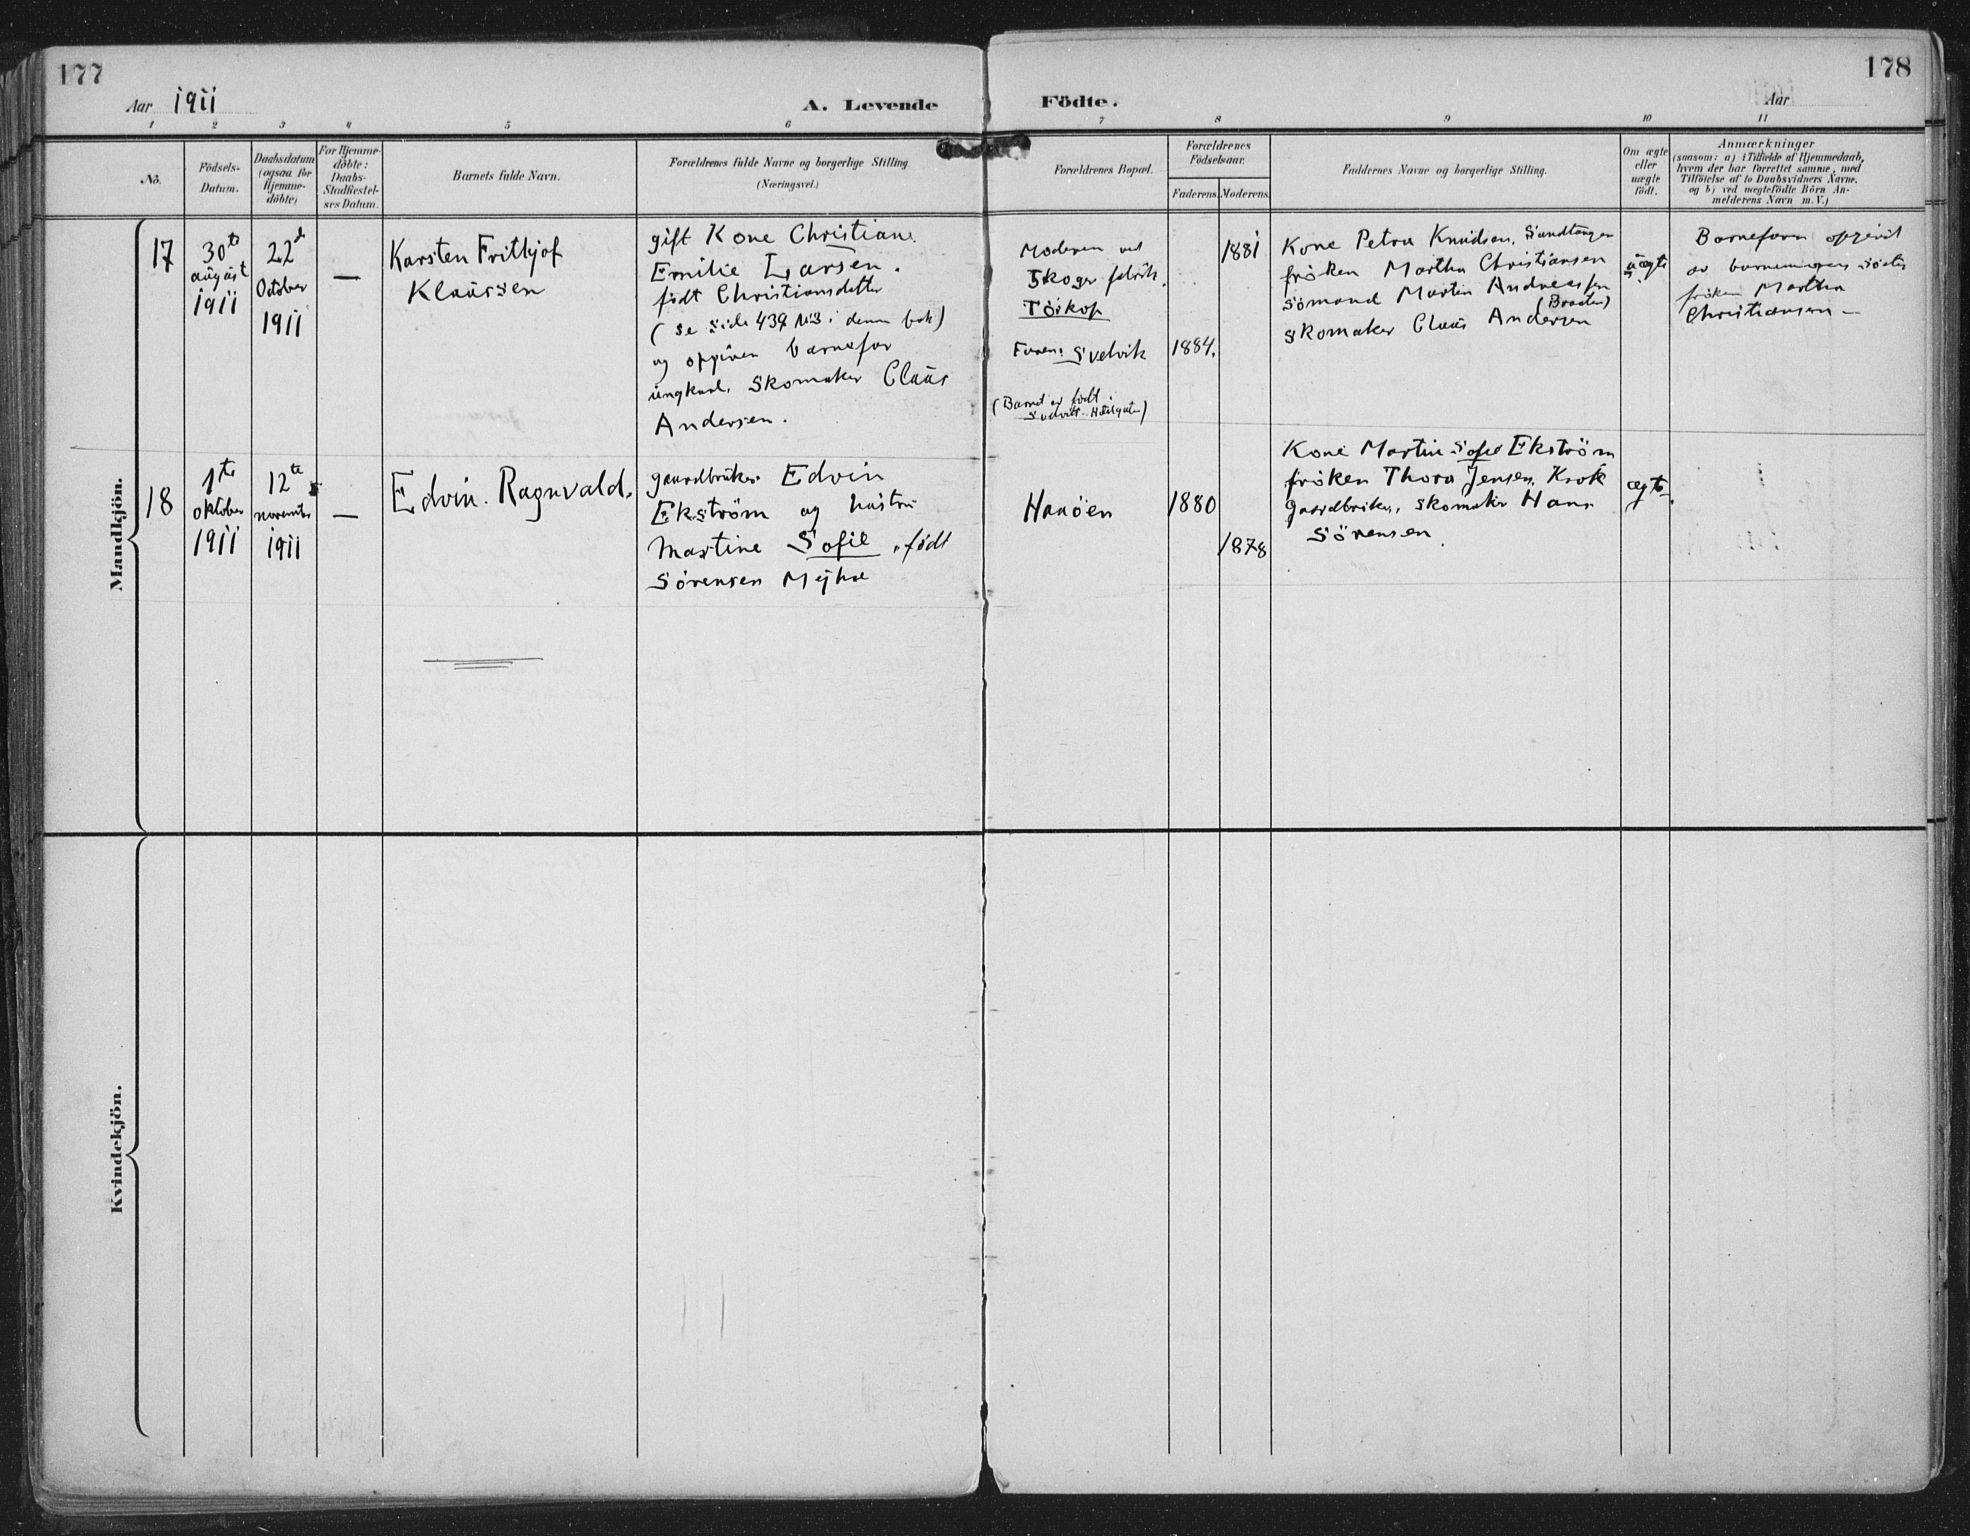 177
178
Aar 1911
A. Levende
Födte.
Aar
1 2 3 4 5 6 7 8 9 10 11
No.
Födsels-
Datum.
Daabsdatum
(ogsaa for
Hjemme-
döbte)
For Hjemme-
döbte:
Daabs-
Stadfæstel-
ses Datum.
Barnets fulde Navn.
Forældrenes fulde Navne og borgerlige Stilling
(Næringsvei.)
Forældrenes Bopæl.
Forældrenes
Födselsaar.
Faderens. Moderens.
Faddernes Navne og borgerlige Stilling.
Om ægte
eller
uægte
födt.
Anmærkninger
(saasom: a) i Tilfælde af Hjemmedaab,
hvem der har forrettet samme, med
Tilföielse af to Daabsvidners Navne,
og b) ved uægtefödte Börn An-
melderens Navn m. V.)
Mandkjön.
17
30te
august
1911
22d
October
1911
—
Karsten Frithjof
Klaussen
gift Kone Christiane
Emilie Larsen.
født Christiansdatter
(se side 439 N3 i denne bok)
og opgiven barnefar
ungkarl, skomaker Claus
Andersen.
Moderen ved
Skoger fabrik.
Törkop
Faren: Svelvik
(Barnet er født i
Svelvik
1884.
1881
Kone Petra Knudsen, Sandtangen
frøken Martha Christiansen
sømand Martin Andreassen
(Braaten)
skomaker Claus Andersen
uægte
Barnefaren opgivet
av barnemorens søster
frøken Martha
Christiansen —
18
1te
oktober
1911
12te
november
1911
—
Edvin Ragnvald.
gaardbruker Edvin
Ekström og hustru
Martine Sofie, født
Sörensen Mejhe
Haaöen
1880
1878
Kone Martin Sofie Ekström
frøken Thora Jensen, Krok
gaardbruker, skomaker Hans
Sörensen
ægte
Kvindekjön.